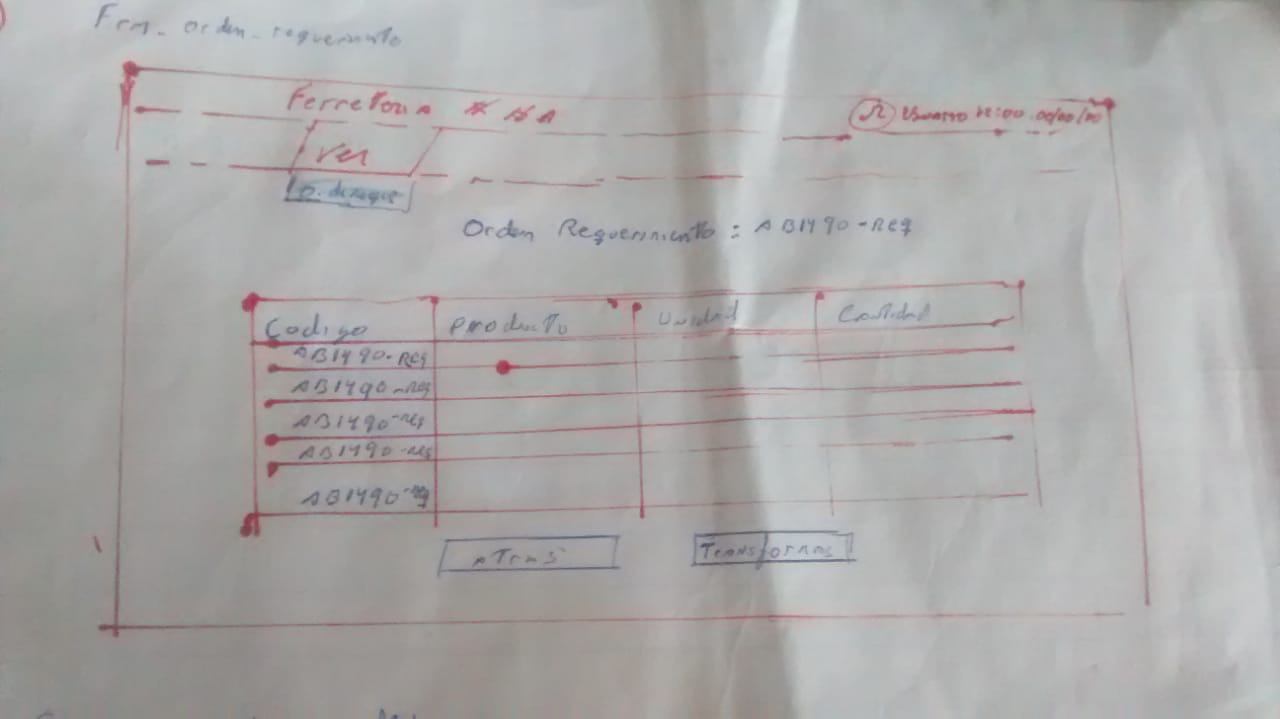 Frm_orden_requerimiento
Ferreteria
Usuario 12:00 00/00/00
Ver
Orden Requerimiento : AB1490-Req
Codigo Producto Unidad Cantidad
AB1490-Req
AB1490-Req
AB1490-req
AB1490-req
AB1490-req
Atras Transformas